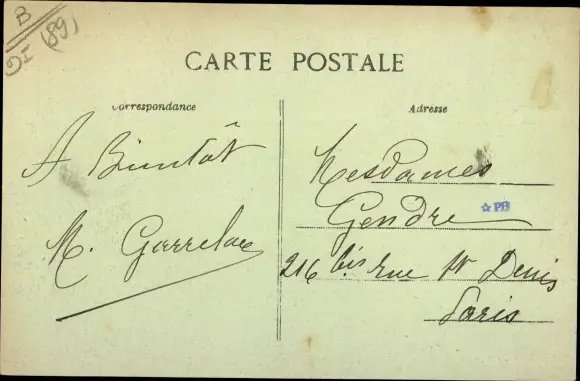 B
(89)
CARTE POSTALE
Correspondance
Adresse
A Bientôt
Mesdames
Gendre
PB
M.
216 bis rue St Denis
Paris